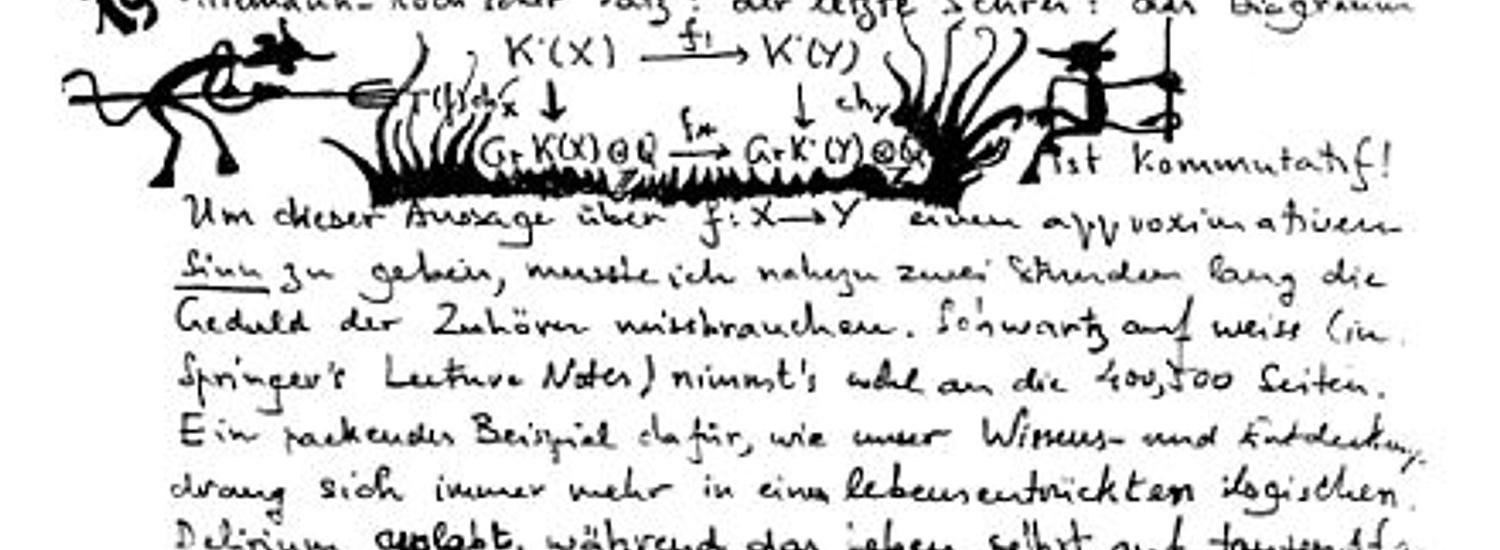 Riemann-Roch'scher Satz: der letzte Schrei: das Diagramm
K˙(X) f! → K˙(Y)
T(f)ch_X ↓ ↓ ch_Y
Gr K(X)⊗Q f* → Gr K˙(Y)⊗Q
Z Z
ist kommutatif!
Um dieser Aussage über f: X → Y einen approximativen
Sinn zu geben, musste ich nahezu zwei Stunden lang die
Geduld der Zuhörer missbrauchen. Schwartz auf weiss (in
Springer's Lecture Notes) nimmt's wohl an die 400, 500 Seiten.
Ein packendes Beispiel dafür, wie unser Wissens- und Entdeckung
drang sich immer mehr in einem lebensentrückten logischen
Delirium auslebt, während das Leben selbst auf